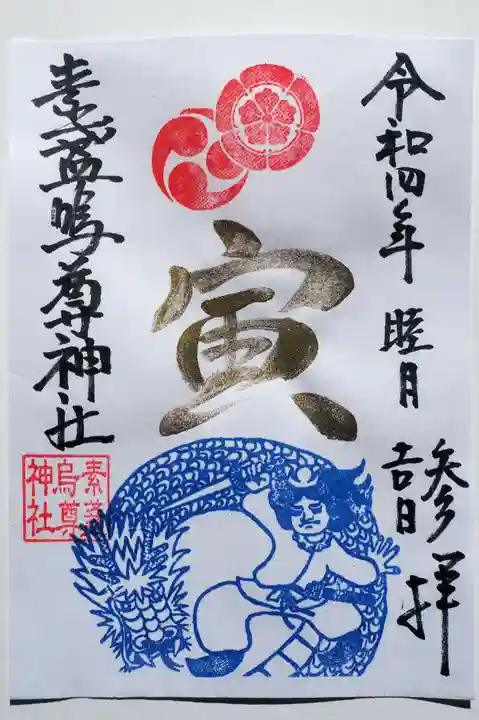 令和四年 睦月 吉日
参拝
寅
素盞嗚尊神社
素盞
嗚尊
神社